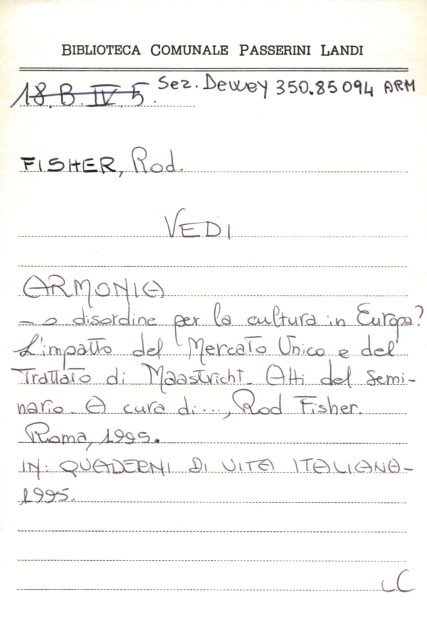 BIBLIOTECA COMUNALE PASSERINI LANDI
18.B.IV.5. Sez. Dewey 350.85094 ARM
FISHER, Rod.
VEDI
ARMONIA
- o disordine per la cultura in Europa?
L'impatto del Mercato Unico e del
Trattato di Maastricht. Atti del Semi-
nario. A cura di..., Rod Fisher.
Roma, 1995.
IN: QUADERNI DI VITA ITALIANA-
1995.
LC